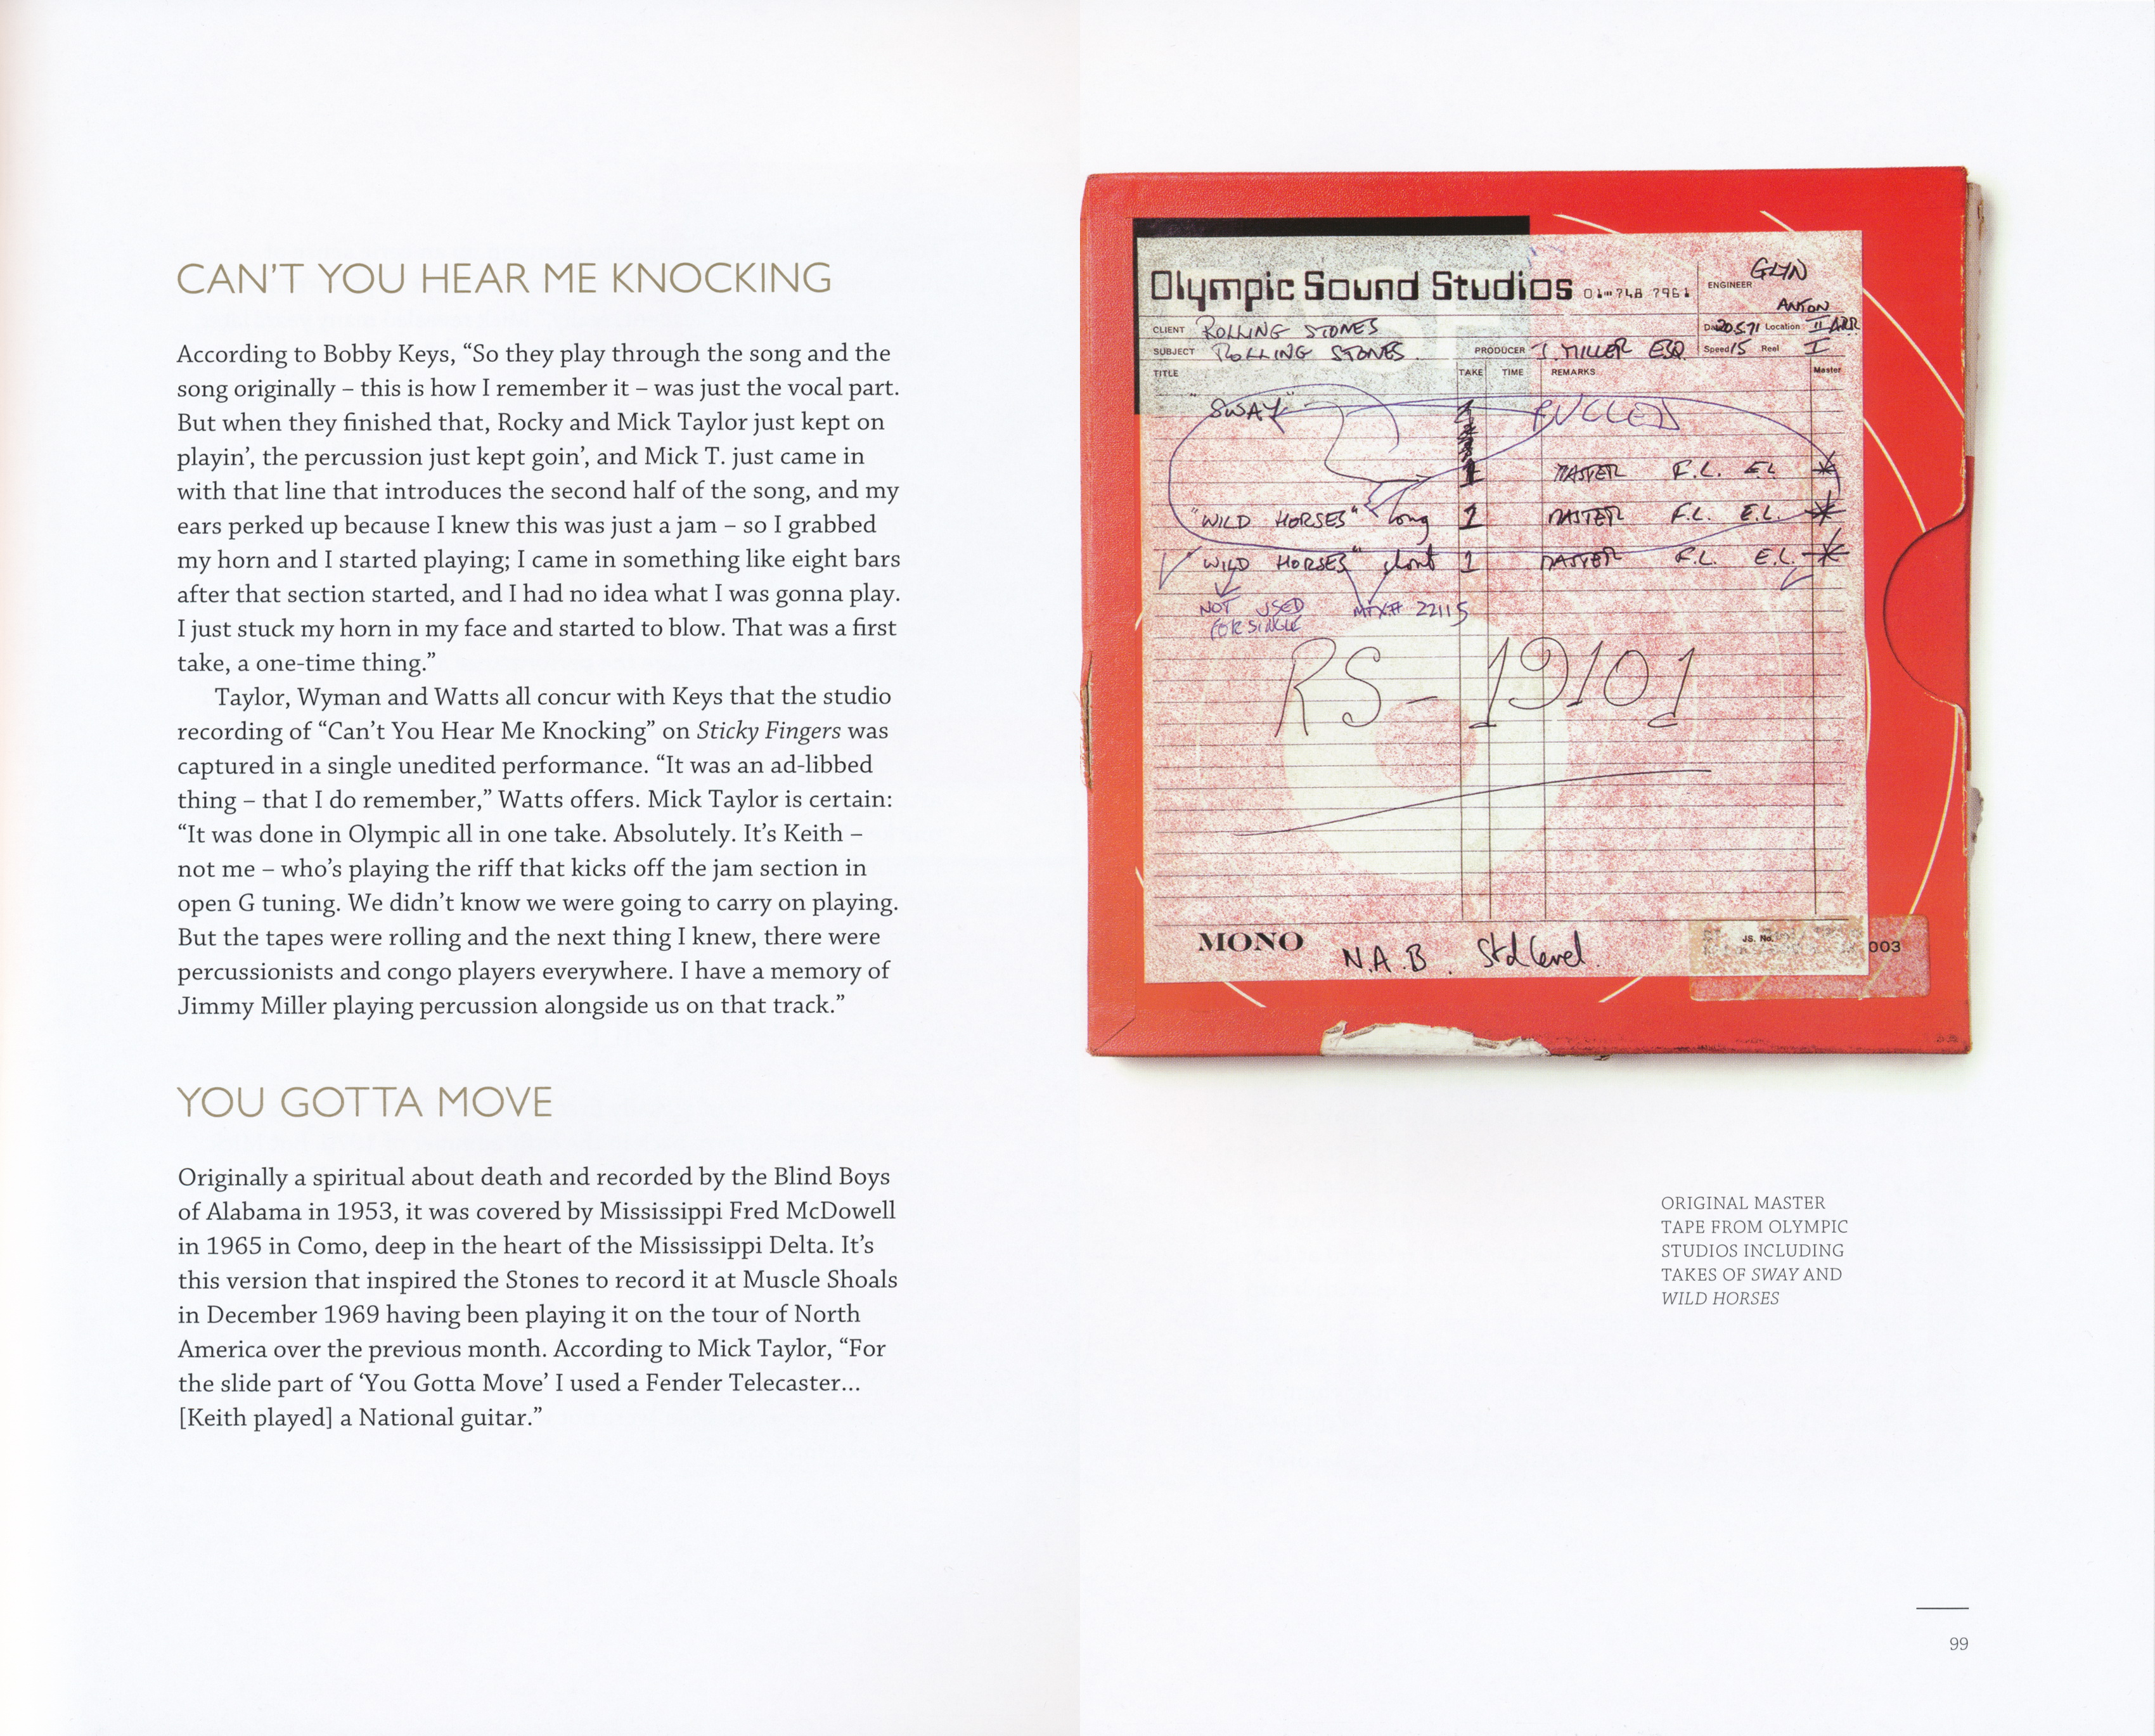 CAN'T YOU HEAR ME KNOCKING
According to Bobby Keys, “So they play through the song and the
song originally – this is how I remember it – was just the vocal part.
But when they finished that, Rocky and Mick Taylor just kept on
playin’, the percussion just kept goin’, and Mick T. just came in
with that line that introduces the second half of the song, and my
ears perked up because I knew this was just a jam – so I grabbed
my horn and I started playing; I came in something like eight bars
after that section started, and I had no idea what I was gonna play.
I just stuck my horn in my face and started to blow. That was a first
take, a one-time thing.”
Taylor, Wyman and Watts all concur with Keys that the studio
recording of “Can’t You Hear Me Knocking” on Sticky Fingers was
captured in a single unedited performance. “It was an ad-libbed
thing – that I do remember,” Watts offers. Mick Taylor is certain:
“It was done in Olympic all in one take. Absolutely. It’s Keith –
not me – who’s playing the riff that kicks off the jam section in
open G tuning. We didn’t know we were going to carry on playing.
But the tapes were rolling and the next thing I knew, there were
percussionists and congo players everywhere. I have a memory of
Jimmy Miller playing percussion alongside us on that track.”
YOU GOTTA MOVE
Originally a spiritual about death and recorded by the Blind Boys
of Alabama in 1953, it was covered by Mississippi Fred McDowell
in 1965 in Como, deep in the heart of the Mississippi Delta. It’s
this version that inspired the Stones to record it at Muscle Shoals
in December 1969 having been playing it on the tour of North
America over the previous month. According to Mick Taylor, “For
the slide part of ‘You Gotta Move’ I used a Fender Telecaster…
[Keith played] a National guitar.”
Olympic Sound Studios 01-748 7961 ENGINEER GLYN
ANTON
CLIENT ROLLING STONES Date 20.5.71 Location II
SUBJECT ROLLING STONES PRODUCER J. MILLER ESQ Speed 15 Reel I
TITLE TAKE TIME REMARKS Master
"SWAY" PULLED
1 MASTER F.L. E.L.
"WILD HORSES" long 1 MASTER F.L. E.L.
WILD HORSES" short 1 MASTER F.L. E.L.
NOT USED MTX# 22115
FOR SINGLE
RS-19101
MONO N.A.B. Std level. JS. No. 003
ORIGINAL MASTER
TAPE FROM OLYMPIC
STUDIOS INCLUDING
TAKES OF SWAY AND
WILD HORSES
99